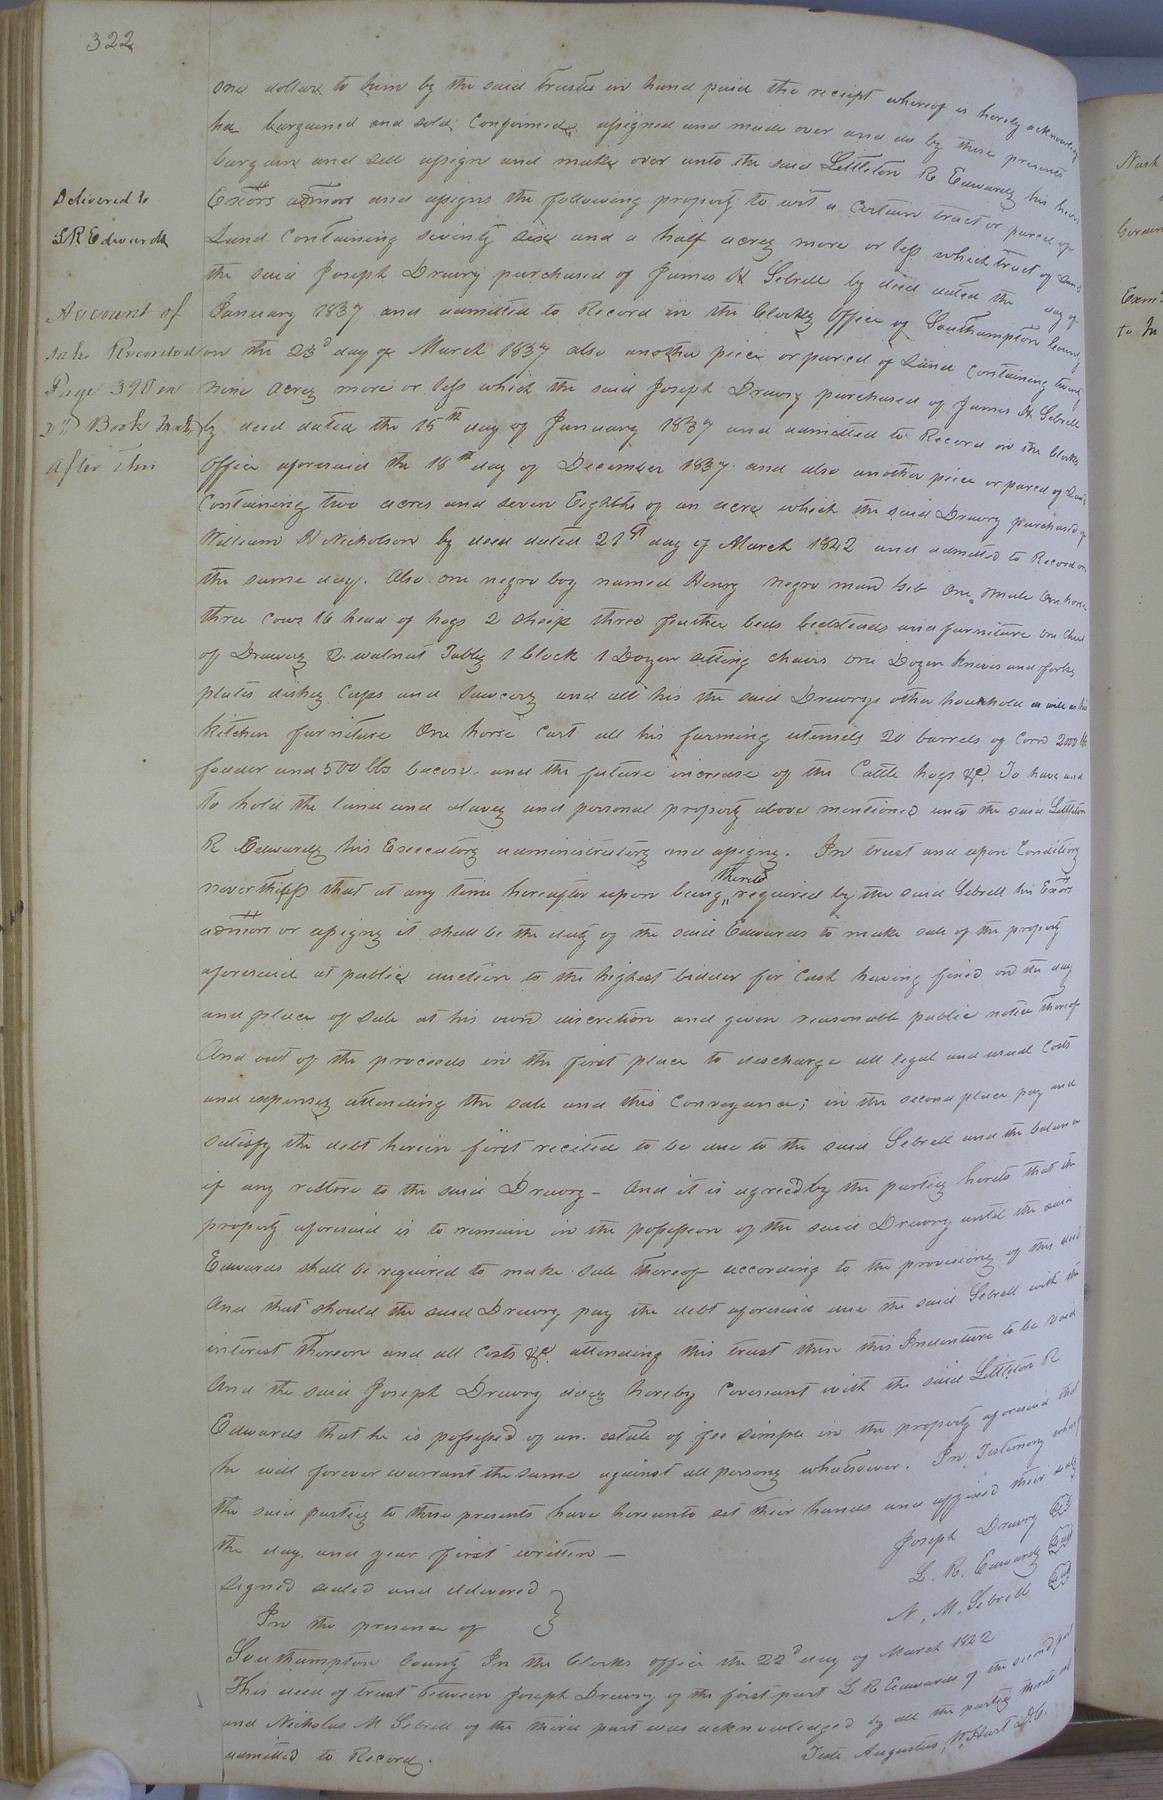 322
one dollar to him by the said trustee in hand paid the receipt whereof is hereby acknowledged
ha bargained and sold, Confirmed, assigned and made over and do by these presents
bargain and sell assign and make over unto the said Littleton R Edwards his heirs
Exors admors and assigns the following property to wit a certain tract or parcel of
Land Containing seventy six and a half acres more or less which tract of Land
the said Joseph Drewry purchased of James H Sebrell by deed dated the day of
January 1837 and admitted to Record in the Clerks Office of Southampton County
on the 23d day of March 1837 also another piece or parcel of Land Containing twenty
nine acres more or less which the said Joseph Drewry purchased of James H Sebrell
by deed dated the 15th day of January 1837 and admitted to Record in the Clerks
Office aforesaid the 18th day of December 1837 and also another piece or parcel of Land
Containing two acres and seven Eighths of an acre which the said Drewry purchased of
William H Nicholson by deed dated 21st day of March 1842 and admitted to Record on
the same day. Also one negro boy named Henry negro man Seb One Mule One horse
three Cows 16 head of hogs 2 sheep three feather beds bedsteads and furniture one Chest
of Drawers 2 walnut Tables 1 Clock 1 Dozen sitting chairs one Dozen knives and forks
plates dishes Cups and saucers and all his the said Drewrys other household as well as his
kitchen furniture One horse Cart all his farming utensils 20 barrels of Corn 2000 lbs
fodder and 500 lbs bacon. and the future increase of the Cattle hogs &c. To have and
to hold the land and slaves and personal property above mentioned unto the said Littleton
R Edwards his Executors administrators and assigns. In trust and upon Conditions
nevertheless that at any time hereafter upon being thereto required by the said Sebrell his Exors
admors or assigns it shall be the duty of the said Edwards to make sale of the property
aforesaid at public auction to the highest bidder for Cash having fixed on the day
and place of sale at his own discretion and given reasonable public notice thereof
And out of the proceeds in the first place to discharge all legal and usual Costs
and expenses attending the sale and this Conveyance; in the second place pay and
satisfy the debt herein first recited to be due to the said Sebrell and the balance
if any restore to the said Drewry - And it is agreed by the parties hereto that the
property aforesaid is to remain in the possession of the said Drewry until the said
Edwards shall be required to make sale thereof according to the provisions of this deed
And that should the said Drewry pay the debt aforesaid due the said Sebrell with the
interest thereon and all Costs &c. attending this trust then this Indenture to be void
And the said Joseph Drewry does hereby Covenant with the said Littleton R
Edwards that he is possessed of an estate of fee simple in the property aforesaid that
he will forever warrant the same against all persons whatsoever. In Testimony whereof
the said parties to these presents have hereunto set their hands and affixed their seals
the day and year first written -
Joseph Drewry Seal
L. R. Edwards Seal
N. M. Sebrell Seal
Signed sealed and delivered
In the presence of
Southampton County In the Clerks office the 22d day of March 1842
This deed of trust between Joseph Drewry of the first part L R Edwards of the second part
and Nicholas M Sebrell of the third part was acknowledged by all the parties thereto and
admitted to Record.
Teste Augustus W. Hart D.C.
Delivered to
L R Edwards
Account of
sale Recorded
Page 390 in
Book Next
After this
Nash
Exam
to